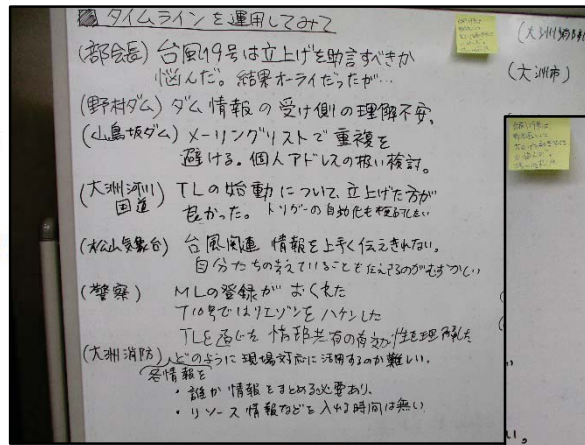 タイムラインを運用してみて
(部会長) 台風19号は立上げを助言すべきか
悩んだ。結果オーライだったが…
(野村ダム) ダム情報の受け側の理解不安。
(山鳥坂ダム) メーリングリストで重複を
避ける。個人アドレスの扱い検討。
(大洲河川国道) TLの始動について、立上げた方が
良かった。トリガーの自動化も検討したい
(松山気象台) 台風関連 情報を上手く伝えきれない。
自分たちの考えていることを伝えるのがむずかしい
(警察) MLの登録が おくれた
T10号ではリエゾンをハケンした
TLを通じた 情報共有の有効性を理解した
(大洲消防) どのように現場対応に活用するのか難しい。
各情報を
・誰か 情報をまとめる必要あり。
・リソース情報などを入れる時間は無い
(大洲市)
い。